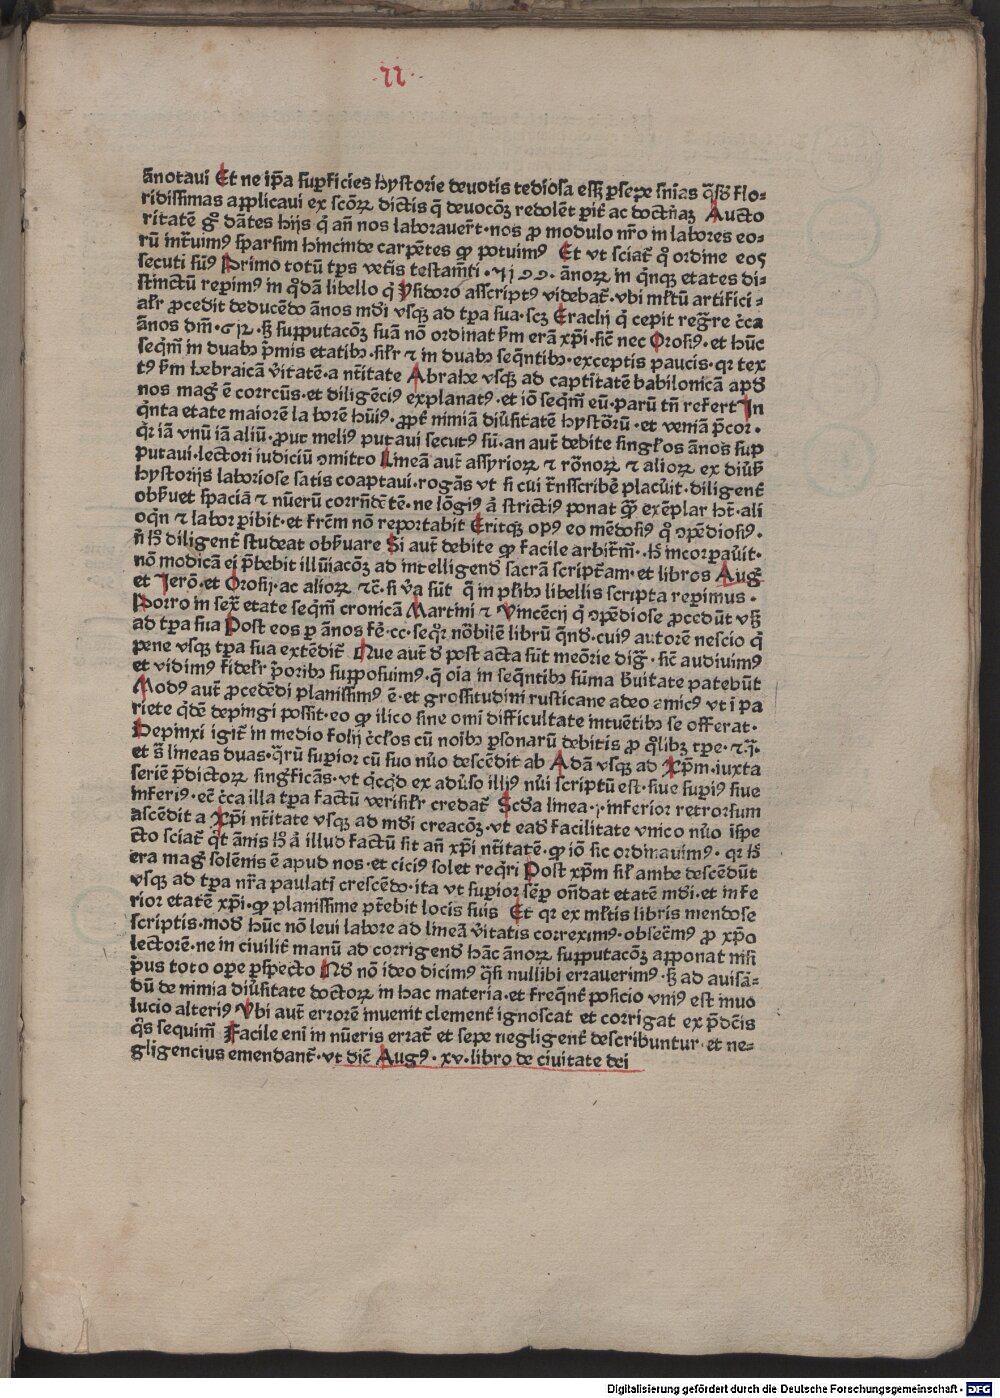 ·22·
ānotaui Et ne ip̄a sup̄ficies hystorie deuotis tediosa esset p̲sepe sn̄ias q̄sdā flo-
ridissimas applicaui ex sc̄oꝝ dictis q̄ deuocōꝫ redolēt p̲it̄ ac doctn̄aꝫ Aucto
ritatē gͦ dātes hijs q̄ añ nos laborauer̄t·nos ꝓ modulo nr̄o in labores eo-
rū int̄uimꝰ sparsim hincinde carpētes qꝫ potuimꝰ Et vt sciat̄ qͦ ordine eos
secuti sumꝰ Primo totū tp̄s vet̄is testam̄ti ·5199· ānoꝝ in qͥnqꝫ etates di-
stinctū rep̲imꝰ in qͦdā libello qͥ ysidoro asscriptꝰ videbat̄·vbi ml̄tū artifici-
alr̄ ꝓcedit deducēdo ānos mūdi vsqꝫ ad tp̄ra sua·scꝫ Eraclij qͥ cepit reḡre c̄ca
ānos dm̄·612·sꝫ supputacōꝫ suā nō ordinat s̄m erā xp̄i·sic̄ nec Orosiꝰ·et hūc
seqm̄ in duabꝫ p̄mis etatibꝫ·silr̄ ⁊ in duabꝫ seqn̄tibꝫ·exceptis paucis·qꝛ tex
tꝰ s̄m hebraicā v̄itatē·a nt̄itate Abrahe vsqꝫ ad captītatē babilonicā apd̄
nos maḡ ē correctꝰ·et diligēciꝰ explanatꝰ·et iō seqm̄ eū·parū tn̄ refert In
qͥnta etate maiorē la borē hūiꝰ·ꝓpt̄ nimiā diūsitatē hystoꝛū·et veniā p̄cor·
qꝛ iā vnū iā aliū·ꝓut meliꝰ putaui secutꝰ sū·an aut̄ debite singlos ānos sup
putaui·lectori iudiciū ꝯmitto Lineā aut̄ assyrioꝝ ⁊ rōnoꝝ ⁊ alioꝝ ex diūs̄
hystorijs laboriose satis coaptaui·rogās vt si cui tn̄sscribē placūit·diligent̄
obs̄uet spaciā ⁊ nūerū corrn̄dētē·ne lōgiꝰ aut̄ strictiꝰ ponat qꝫ exēplar hꝫ·ali
oqn̄ ⁊ labor p̲ibit·et fr̄em nō reportabit Eritqꝫ opꝰ eo mēdosiꝰ qͦ ꝯpēdiosiꝰ·
n̄ hͦ diligent̄ studeat obs̄uare Si aut̄ debite qꝫ facile arbit̄m̄·hͦ incorpaūit·
nō modicā ei p̄bebit illūiacōꝫ ad intelligend̄ sacrā script̄am·et libros Auḡ
et Jerō·et Orosij·ac alioꝝ ⁊c̄·si v̄a sūt q̄ in pl̄ibꝫ libellis scripta rep̲imus·
Porro in sex̄ etate seqm̄ cronicā Martini ⁊ Vincēcij qͥ ꝯpēdiose ꝓcedūt vsqꝫ
ad tp̄ra sua Post eos p̲ ānos fe̲·cc·seqr̄ nōbilē librū qͦnd̄·cuiꝰ autorē nescio qͥ
pene vsqꝫ tp̄ra sua extēdit̄ Que aut̄ d̄ post acta sūt meōrie diḡ·sic̄ audiuimꝰ
et vidimꝰ fidelr̄ p̄oribꝫ supposuimꝰ·q̄ oīa in seqn̄tibꝫ sūma b̄uitate patebūt
Modꝰ aut̄ ꝓcedēdi planissimꝰ ē·et grossitudini rusticane adeo amicꝰ vt ī pa
riete qͥdē depingi possit·eo qꝫ ilico sine om̄i difficultate intuētibꝫ se offerat·
Depinxi igit̄ in medio folij c̄clos cū noībꝫ p̲sonarū debitis ꝓ qͦlibꝫ tp̄e·⁊ q̄·
et s̄ lineas duas·q̄rū sup̲ior cū suo nūo descēdit ab Adā vsqꝫ ad Xp̄m·iuxta
seriē p̄dictoꝝ sinḡficās·vt qͥcqͥd ex adūso illiꝰ nūi scriptū est·siue sup̲iꝰ siue
inferiꝰ·ec̄ c̄ca illa tp̄ra factū verisilr̄ credat̄ Scd̄a linea·ꝫ·inferior retrorsum
ascēdit a Xp̄i nt̄itate vsqꝫ ad mūdi creacōꝫ·vt ead̄ facilitate vnico nūo īspe
cto sciat̄ qͦt ānis hͦ aut̄ illud factū sit añ xp̄i nt̄itatē·qꝫ iō sic ordinauimꝰ·qꝛ hͦ
era maḡ solēnis ē apud nos·et ciciꝰ solet req̄ri Post xp̄m sil̄ ambe descēdūt
vsqꝫ ad tp̄ra nr̄a paulatī crescēdo·ita vt sup̲ior sēp̲ on̄dat etatē mūdi·et infe
rior etatē xp̄i·qꝫ planissime pt̄ebit locis suis Et qꝛ ex ml̄tis libris mendose
scriptis·mod̄ hūc nō leui labore ad lineā v̄itatis correximꝰ·obsec̄mꝰ ꝓ xp̄o
lectorē·ne in ciuilit̄ manū ad corrigend̄ hāc ānoꝝ supputacōꝫ apponat nisi
p̄us toto ope̲ p̲specto Nā nō ideo dicimꝰ qͣsi nullibi errauerimꝰ·sꝫ ad auisā-
dū de nimia diūsitate doctoꝝ in hac materia·et freqn̄t̄ posicio vniꝰ est inuo
lucio alteriꝰ Vbi aut̄ errorē inuenit clement̄ ignoscat et corrigat ex p̄dc̄is
qͦs sequim̄ Facile eni in nūeris errat̄ et sepe negligent̄ describuntur·et ne-
gligencius emendant̄·vt dic̄ Augꝰ·xv·libro de ciuitate dei
Digitalisierung gefördert durch die Deutsche Forschungsgemeinschaft - DFG